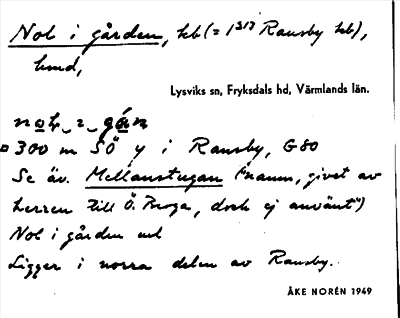 Nol i gården, hb (= 1³¹³ Ransby hb),
Lysviks sn, Fryksdals hd, Värmlands län.
300 m SÖ y i Ransby, G80
Se äv. Mellanstugan (namn, givet av
herren till Ö. Broga, dock ej använt")
Nol i gården
Ligger i norra delen av Ransby.
ÅKE NORÉN 1949